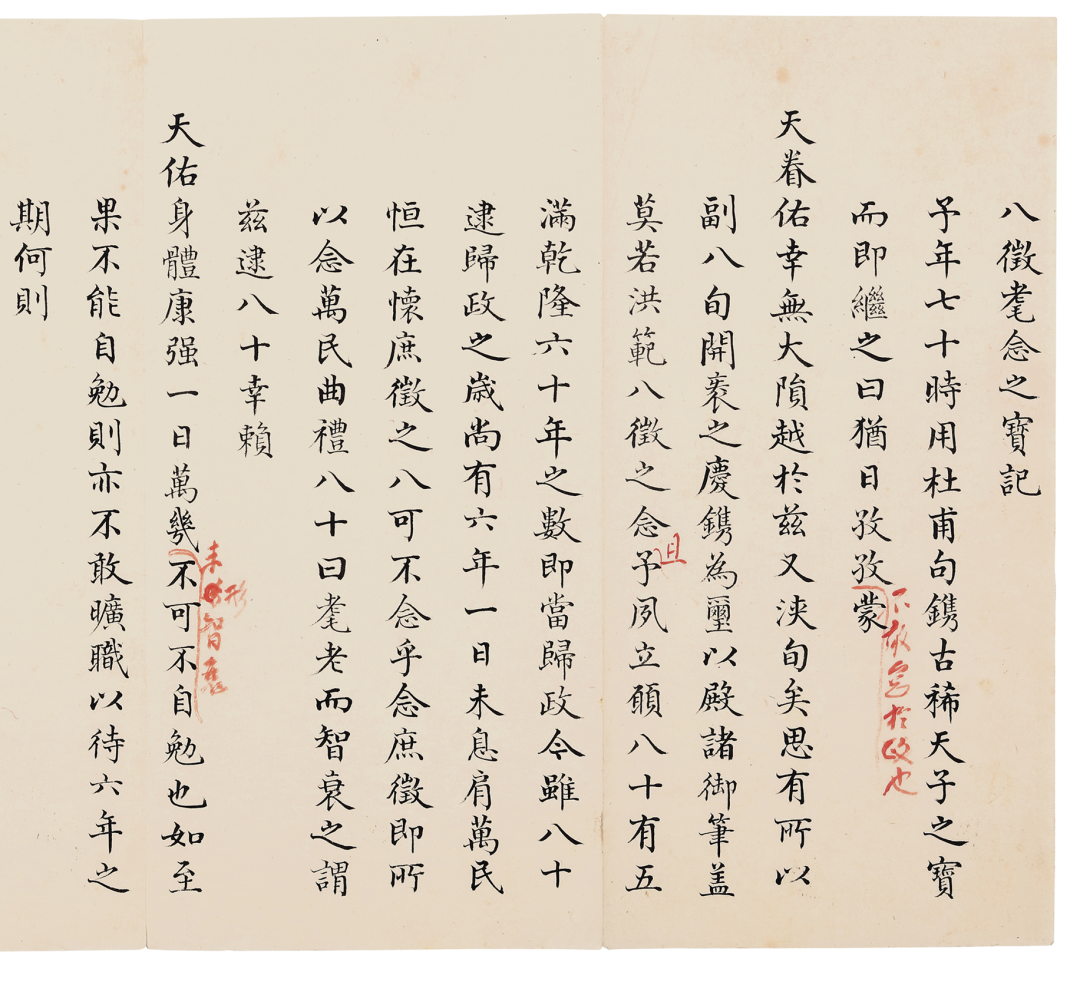 八徵耄念之寶記
予年七十時用杜甫句鐫古稀天子之寶
而即繼之曰猶日孜孜蒙
不敢怠於政也
天眷佑幸無大隕越於茲又浹旬矣思有所以
副八旬開袠之慶鐫為璽以殿諸御筆蓋
莫若洪範八徵之念予夙立願八十有五
且
滿乾隆六十年之數即當歸政今雖八十
逮歸政之歲尚有六年一日未息肩萬民
恒在懷庶徵之八可不念乎念庶徵即所
以念萬民曲禮八十曰耄老而智衰之謂
茲逮八十幸賴
天佑身體康强一日萬幾不可不自勉也如至
未形智衰
果不能自勉則亦不敢曠職以待六年之
期何則